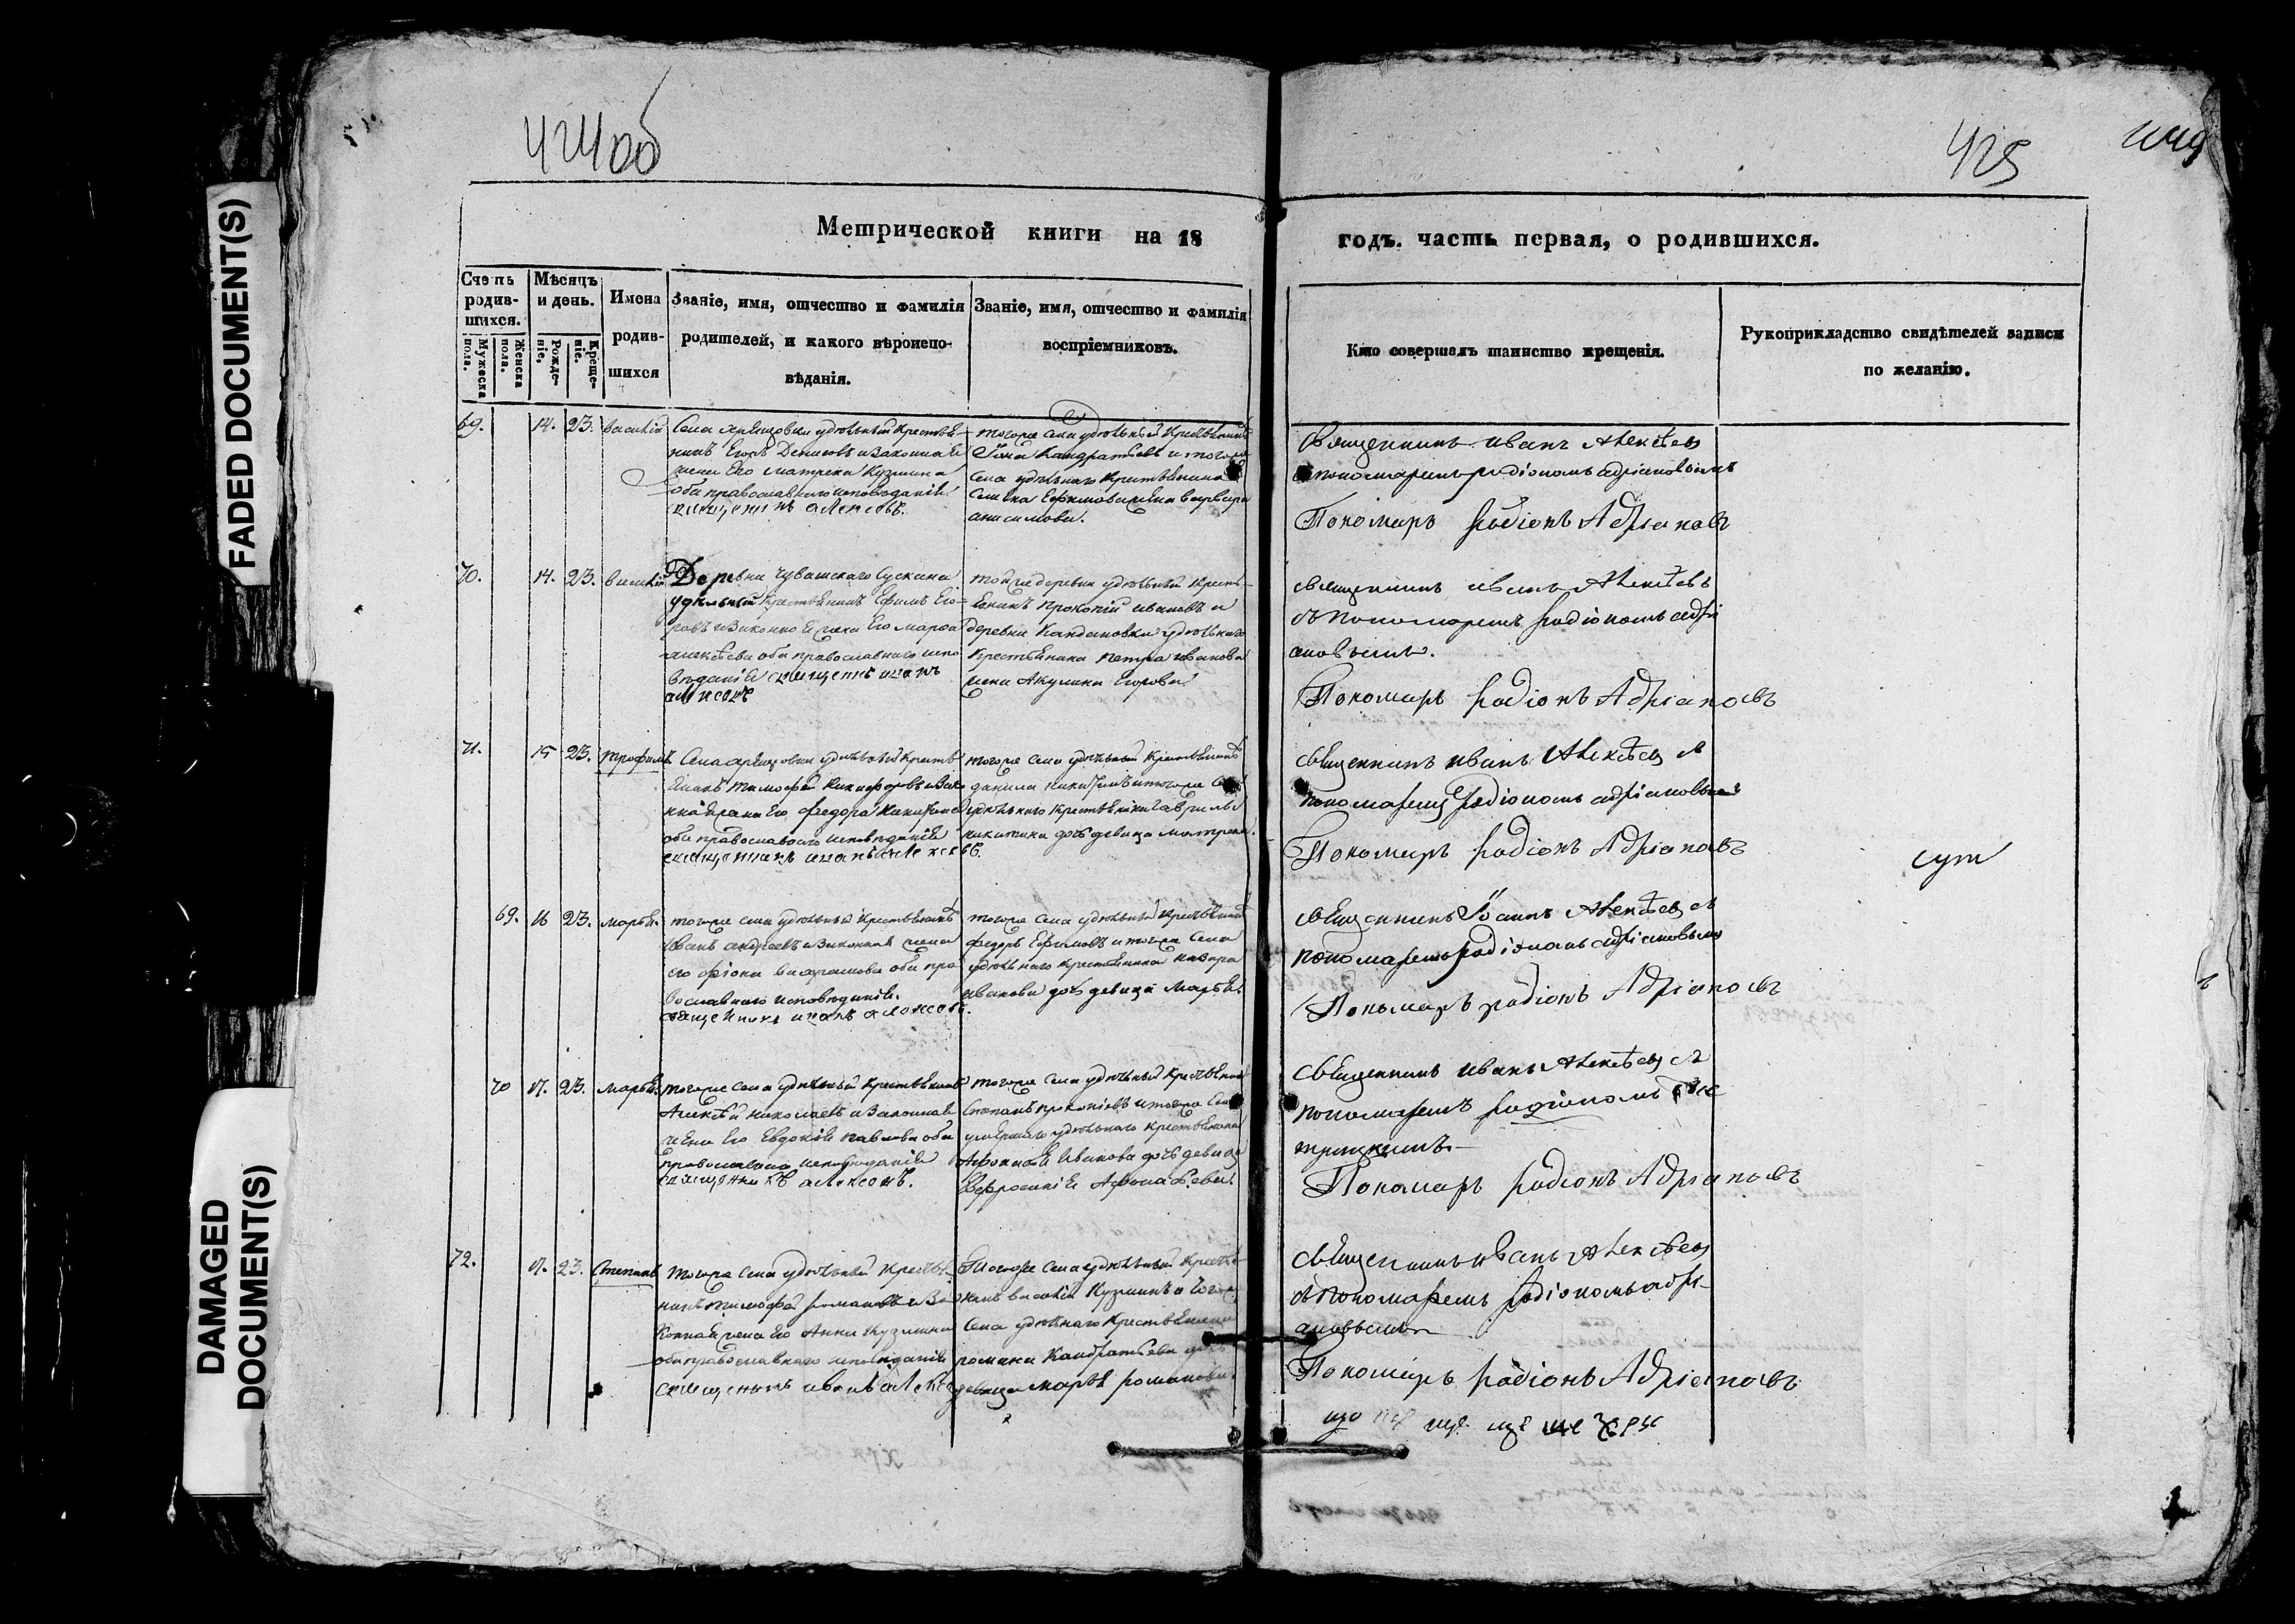 FADED DOCUMENT(S)
DAMAGED
DOCUMENT(S)
424об
425
Метрической книги на 18
годъ. часть первая, о родившихся.
Счетъ родив-шихся.
Мужеска пола.
Женска пола.
Мѣсяцъ и день.
Рожде-ніе.
Креще-ніе.
Имена
родив-
шихся
Званіе, имя, отчество и фамилія
родителей, и какого вѣроиспо-
вѣданія.
Званіе, имя, отчество и фамилія
воспріемниковъ.
Кто совершалъ таинство крещенія.
Рукоприкладство свидѣтелей записи
по желанію.
69. 14. 23. Василій
Села удѣльный крестья
нинъ Егоръ Денисовъ и законная
жена Его Матрена Кузмина
оба православнаго исповѣданія
священникъ алексевъ.
тогоже села удѣльный крестьянинъ
Іона Кандратьевъ и тогоже
села удѣльнаго крестьянина
Семена Ефимова жена варвара
анисимова.
Священникъ иванъ Алексѣев
с пономаремъ радіономъ адріановымъ
Пономарь радіонъ Адріановъ
70. 14. 23. Василій
Деревни чувашскаго Сускана
удельный крестьянинъ Ефимъ Его-
ровъ и законная жена Его марфа
алексѣева оба православнаго испо
вѣданія священникъ иванъ
алексевъ
тойже деревни удѣльный кресть-
янинъ прокопій ивановъ и
деревни Кандаковки удѣльнаго
крестьянина петра иванова
жена Акулина Егорова
священникъ иванъ Алексѣевъ
съ пономаремъ радіономъ адрі
ановымъ.
Пономарь радіонъ Адріановъ
71. 15 23. трофимъ
Села удѣльный крестья
нинъ тимофей Никифоровъ и зако
нная жена Его федора Никитина
оба православнаго исповѣданія
священникъ иванъ алексевъ.
тогоже села удѣльный крестьянинъ
данила никитинъ и тогоже села
удѣльнаго крестьянина гаврилы
никитина дочь девица матрена.
священникъ иванъ Алексѣев с
пономаремъ радіономъ адріановымъ
Пономарь радіонъ Адріановъ
сут
69. 16 23. марья.
тогоже села удѣльный крестьянинъ
иванъ андреевъ и законная жена
его оба пра
вославнаго исповѣданія.
священникъ иванъ алексевъ.
тогоже села удѣльный крестьянинъ
федоръ Ефимовъ и тогоже села
удѣльнаго крестьянина назара
иванова дочь девица марья.
священникъ Іоаннъ Алексѣев с
пономаремъ радіономъ адріановымъ
Пономарь радіонъ Адріановъ
70 17. 23. марья.
тогоже села удѣльный крестьянинъ
Алексѣй николаевъ и законная
жена Его Евдокія павлова оба
православнаго исповѣданія
священникъ алексевъ.
тогоже села удѣльный крестьянинъ
Степанъ прокопіевъ и тогоже села
умершаго удѣльнаго крестьянина
Афонасья Иванова дочь девица
Афонасьева.
священникъ иванъ Алексѣев с
пономаремъ радіономъ
Пономарь радіонъ Адріановъ
72. 17. 23. Степанъ
тогоже села удѣльный крестья
нинъ тимофей романовъ и за
конная жена его Анна кузмина
оба православнаго исповѣданія
священникъ иванъ алексев
Тогоже села удѣльный крестья
нинъ василій Кузминъ и тогоже
Села удѣльнаго крестьянина
романа Кандратьева дочь
девица марья романова.
священникъ иванъ Алексѣев
съ пономаремъ радіономъ адрі-
ановымъ
Пономарь радіонъ Адріановъ